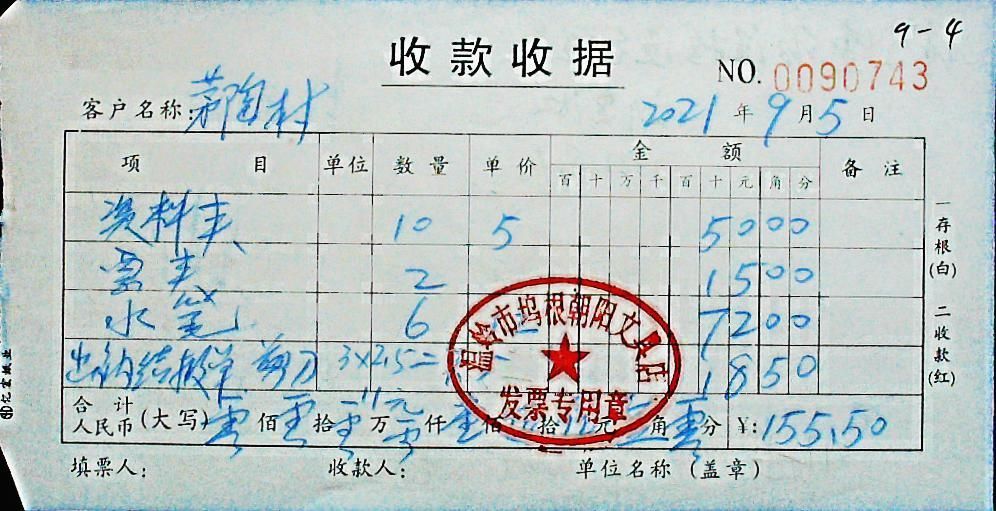 9-4
收款收据
NO. 0090743
客户名称: 茅陶村 2021年9月5日
项目 单位 数量 单价 金额 备注
百十万千百十元角分
资料夹 10 5 5000
票夹 2 1500
水笔 6 7200
出纳结报单 剪刀 3×2.5= 1850
11元
合计人民币(大写) 零佰零拾零万零仟壹佰 拾 元 角零分 ¥:155.50
填票人: 收款人: 单位名称(盖章)
一存根(白) 二收款(红)
温岭市坞根朝阳文具店
发票专用章